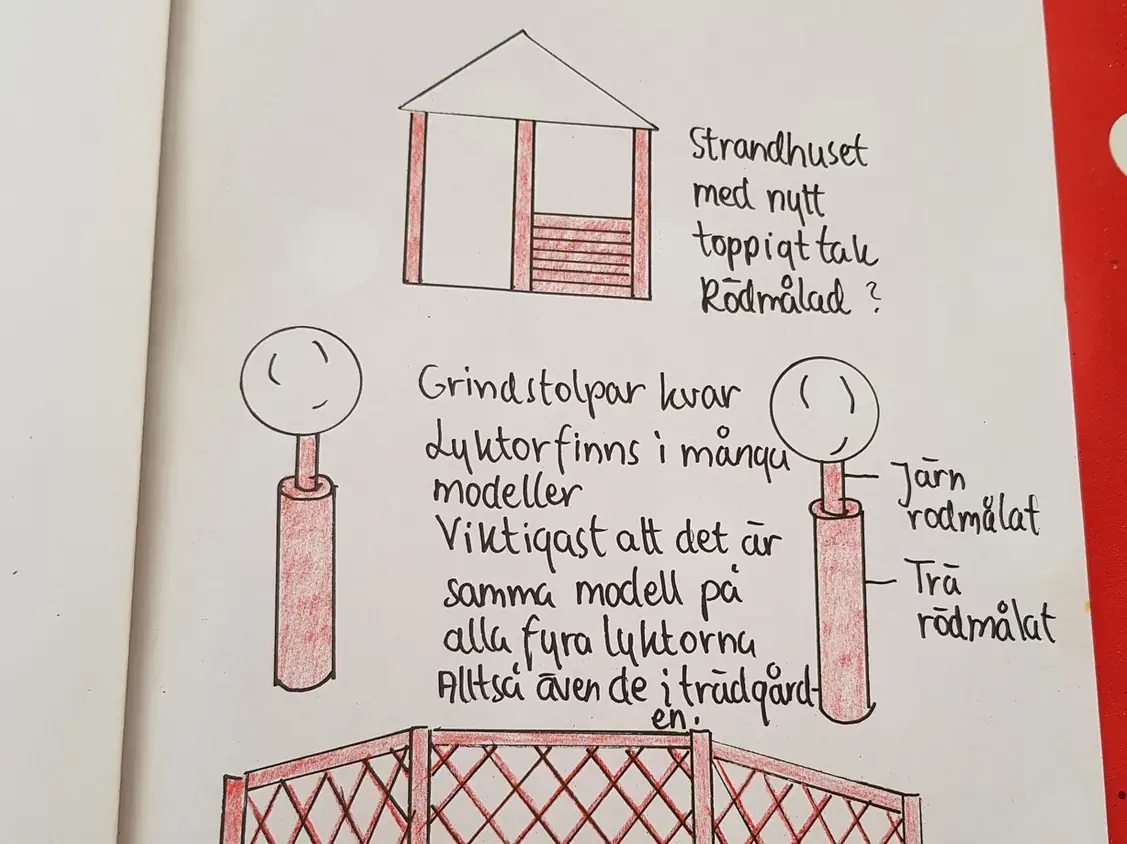 Strandhuset
med nytt
toppigt tak
Rödmålad ?
Grindstolpar kvar
Lyktor finns i många
modeller
Viktigast att det är
samma modell på
alla fyra lyktorna
Alltså även de i trädgård-
en.
Järn
rodmålat
Trä
rödmålat